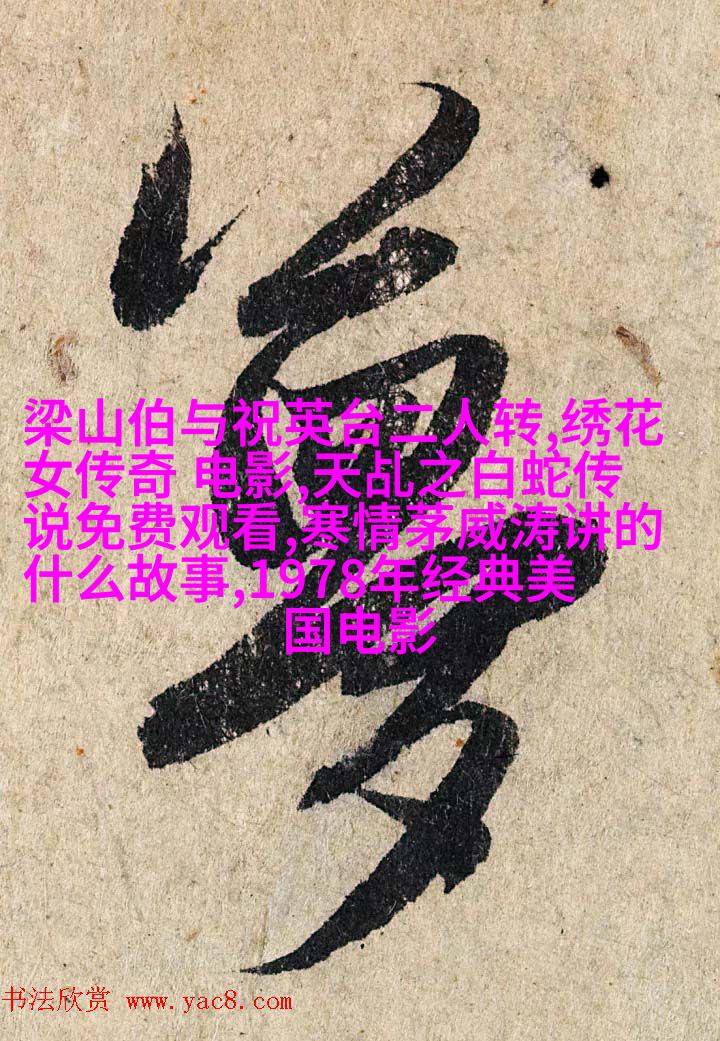 夢
梁山伯与祝英台二人转,绣花
女传奇 电影,天乩之白蛇传
说免费观看,寒情茅威涛讲的
什么故事,1978年经典美
国电影
书法欣赏 www.yac8.com